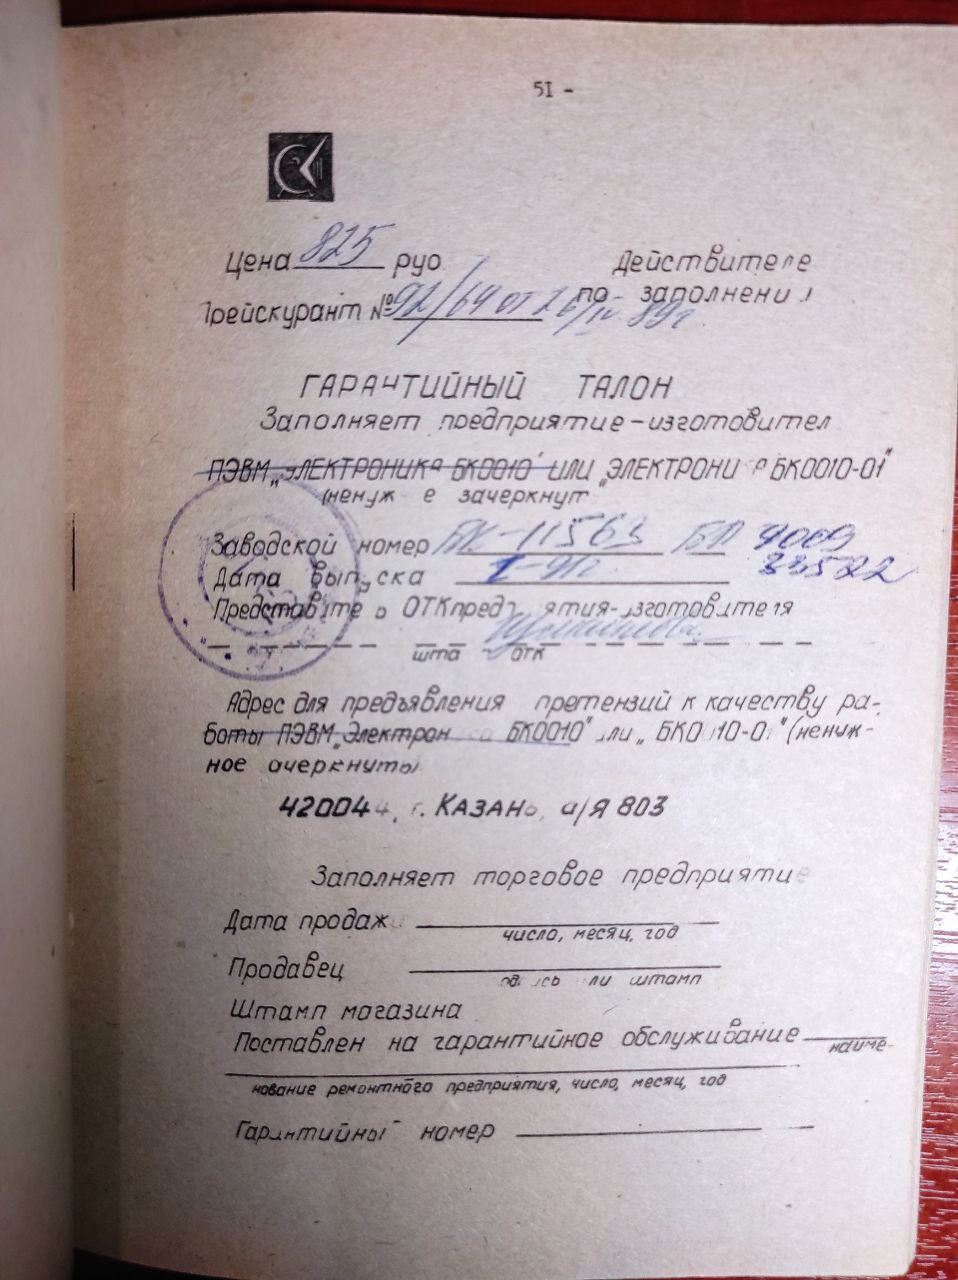 51 -
Цена 825 руо Действителе
по заполнени
Прейскурант № 92/64 от 26/IV-89г
ГАРАНТИЙНЫЙ ТАЛОН
Заполняет предприятие-изготовител
ПЭВМ „ЭЛЕКТРОНИКА БК0010" ИЛИ „ЭЛЕКТРОНИ А БК0010-01"
(ненуж е зачеркнут
Заводской номер БК-11563 БП 4009
33522
Дата выпуска 1-91г.
Представите ОТК предп ятия-изготовителя
шта ОТК
Адрес для предъявления претензий к качеству ра-
боты ПЭВМ „Электрон ка БК0010" или „ БК0 10-0 " (ненуж-
ное ачеркнуть)
420044, г. КАЗАНЬ, а/Я 803
Заполняет торговое предприятие
Дата продажи
число, месяц, год
Продавец
подпись или штамп
Штамп магазина
Поставлен на гарантийное обслуживание
наиме-
нование ремонтного предприятия, число, месяц, год
Гарантийный номер